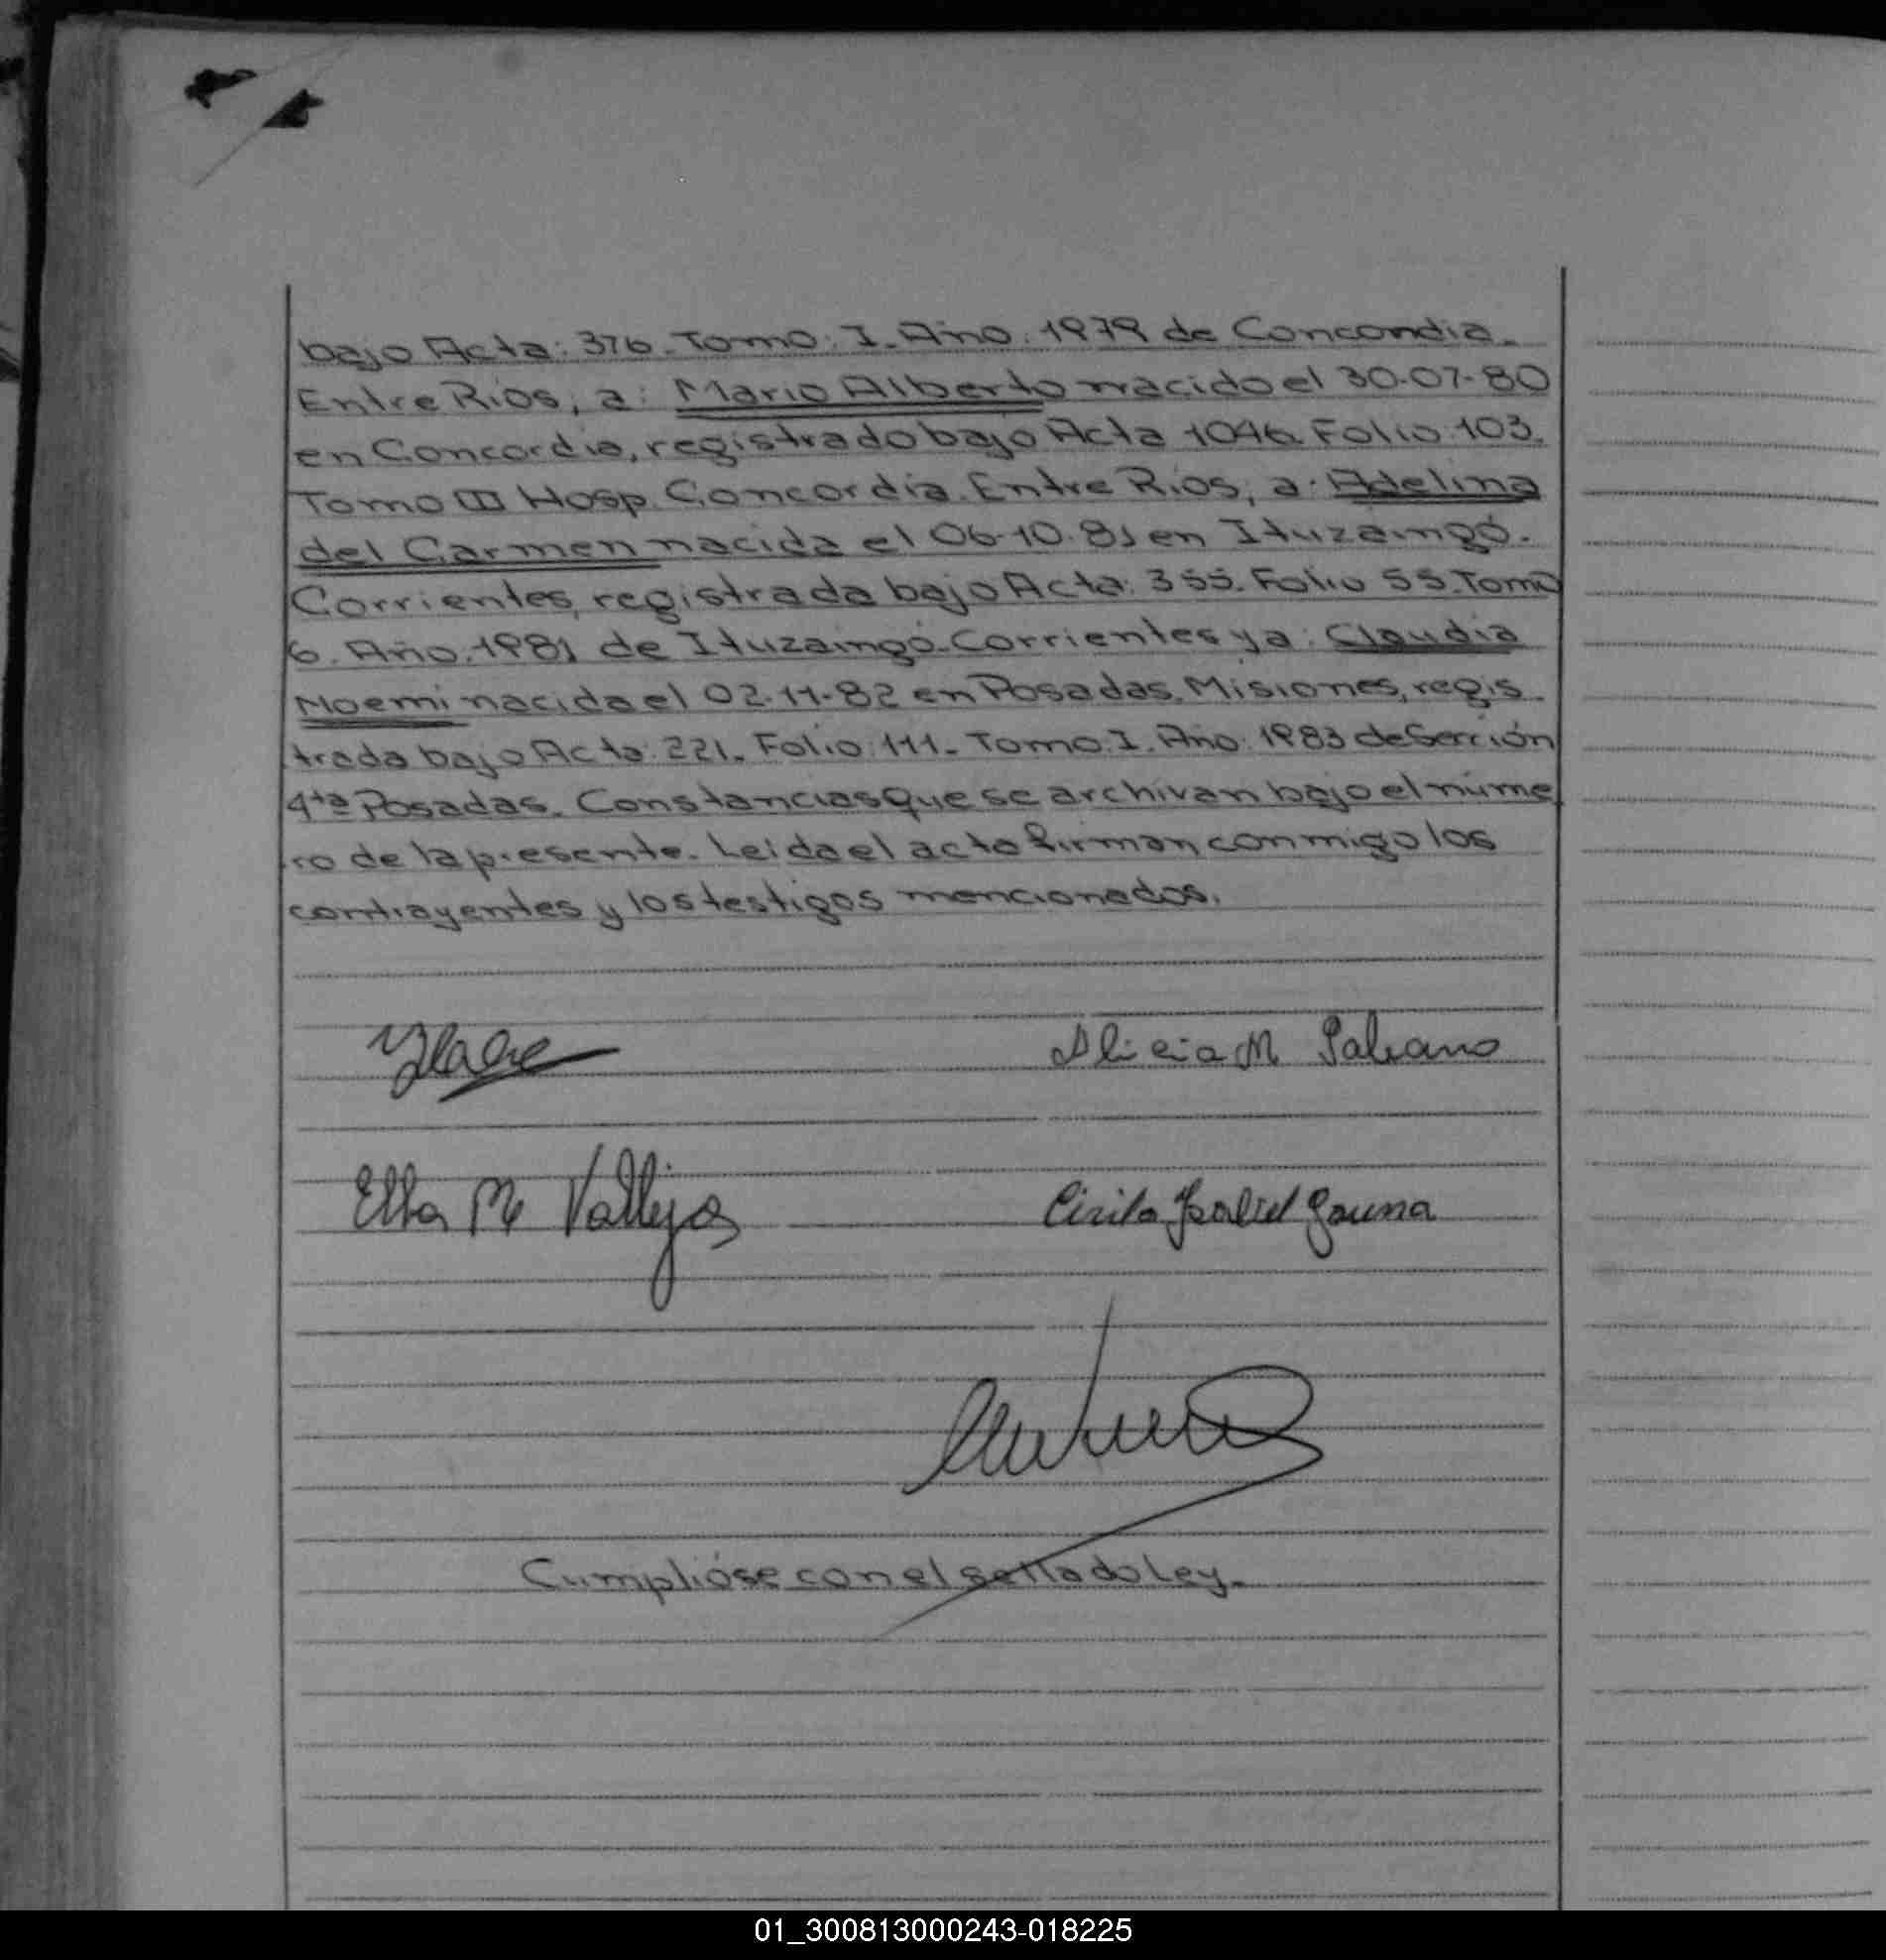 bajo Acta: 376. Tomo: I. Año: 1979 de Concordia.
Entre Rios, a: Mario Alberto nacido el 30-07-80
en Concordia, registrado bajo Acta 1046. Folio: 103.
Tomo III Hosp. Concordia. Entre Rios, a: Adelina
del Carmen nacida el 06-10-81 en Ituzaingó.
Corrientes, registrada bajo Acta: 355. Folio 55. Tomo
6. Año. 1981 de Ituzaingó. Corrientes y a: Claudia
Noemi nacida el 02-11-82 en Posadas. Misiones, regis
trada bajo Acta: 221. Folio: 111. Tomo: I. Año: 1983 de Sección
4ta Posadas. Constancias que se archivan bajo el núme
ro de la presente. Leida el acta firman conmigo los
contrayentes y los testigos mencionados.
Alicia M
Elba M Vallejos
Cirilo Isabel Gauna
Cumplióse con el sellado Ley.
01_300813000243-018225